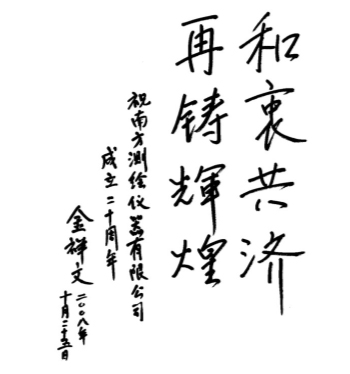 和衷共济
再铸輝煌
祝南方測绘仪器有限公司
成立二十周年
金祥文
二〇〇八年
十月二十五日